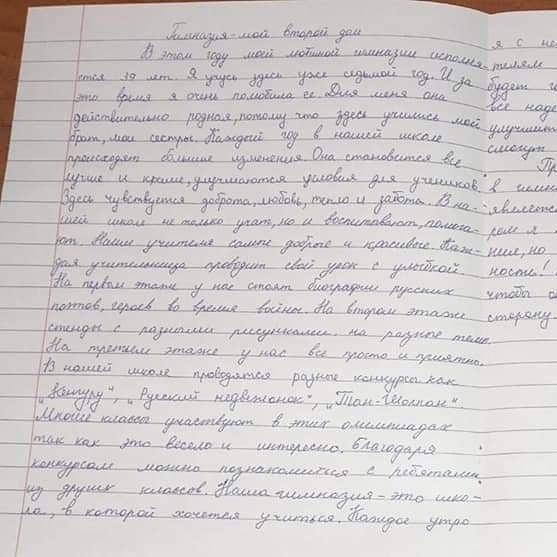 Гимназия-мой второй дом
В этом году моей любимой гимназии исполня-
ется 19 лет. Я учусь здесь уже седьмой год. И за
это время я очень полюбила её. Для меня она
действительно родная, потому что здесь учились мой
брат, мои сестры. Каждый год в нашей школе
происходят большие изменения. Она становится все
лучше и краше, улучшаются условия для учеников.
Здесь чувствуется доброта, любовь, тепло и забота. В на-
шей школе не только учат, но и воспитывают, помога-
ют. Наши учителя самые добрые и красивые. Каж-
дая учительница проводит свой урок с улыбкой.
На первом этаже у нас стоят биографии русских
поэтов, героев во время войны. На втором этаже
стенды с разными рисунками. на разные темы.
На третьем этаже у нас все просто и приятно.
В нашей школе проводятся разные конкурсы. как
„Кенгуру", „Русский медвежонок", „Тан-Шолпан".
Многие классы участвуют в этих олимпиадах
так как это весело и интересно. Благодаря
конкурсам можно познакомиться с ребятами
из других классов. Наша гимназия-это шко-
ла, в которой хочется учиться. Каждое утро
я с не
телям
будет
все наде
улучшит
смогут
Пр
в гимн
является
рем я
ние, но
ность!
чтобы
сторону.